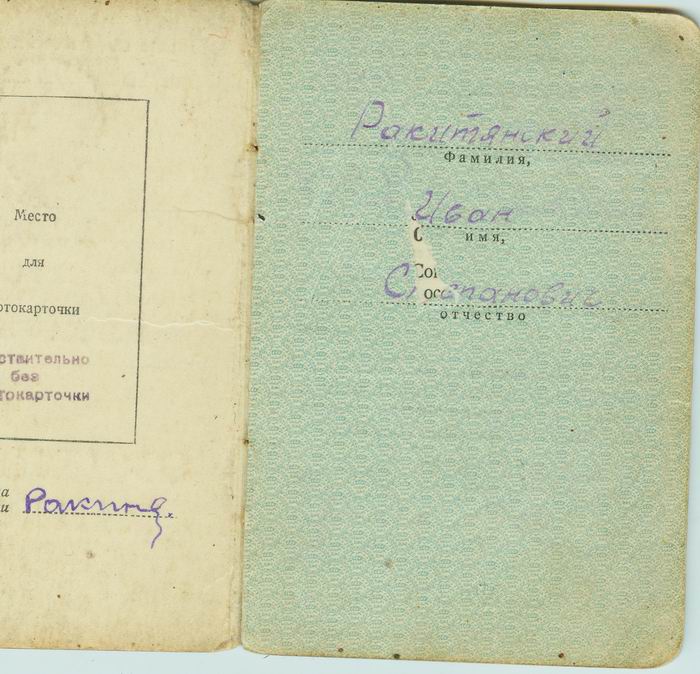 Место
для
отокарточки
ствительно
без
токарточки
а
и
Ракитя.
Ракитянский
Фамилия,
Иван
С
имя,
Сог
осс
Степанович
отчество